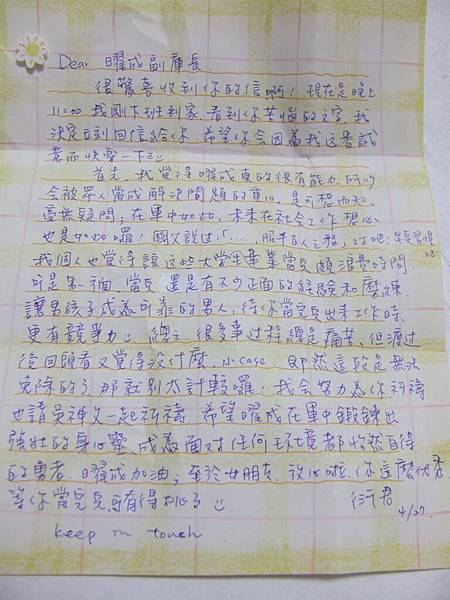 Dear 曜成副庫長.
很驚喜收到你的信啊! 現在是晚上
11:00 我剛下班到家 看到你苦惱的文字, 我
決定立刻回信給你 希望你会因為我这番誠
意而快樂一下
首先, 我覺得曜成真的很有能力 所以
会被眾人當成解決問題的重心, 是可想而知.
毫無疑問; 在軍中如此, 未來在社会工作 想必
也是如此囉! 國父說过「..... 服千百人之務」, 对吧! 早点習慣
吧!
我個人也覺得讓这些大學生畢業當兵頗浪費時間.
可是另一面, 當兵還是有不少正面的經驗和磨練
讓男孩子成為可靠的男人, 待你當完兵出來工作時,
更有競爭力 總之 很多事过程總是痛苦, 但渡过
後回頭看又覺得沒什麼, 小case. 即然這段是無法
免除的了 那就別太計較囉! 我会努力為你祈禱
也請吳神父一起祈禱 希望曜成在軍中鍛鍊出
強壯的身心靈, 成為面对任何环境都悠然自得
的勇者. 曜成加油; 至於女朋友, 放心啦, 你這麼优秀.
等你當完兵, 有得挑了
衍君
4/27.
keep in touch